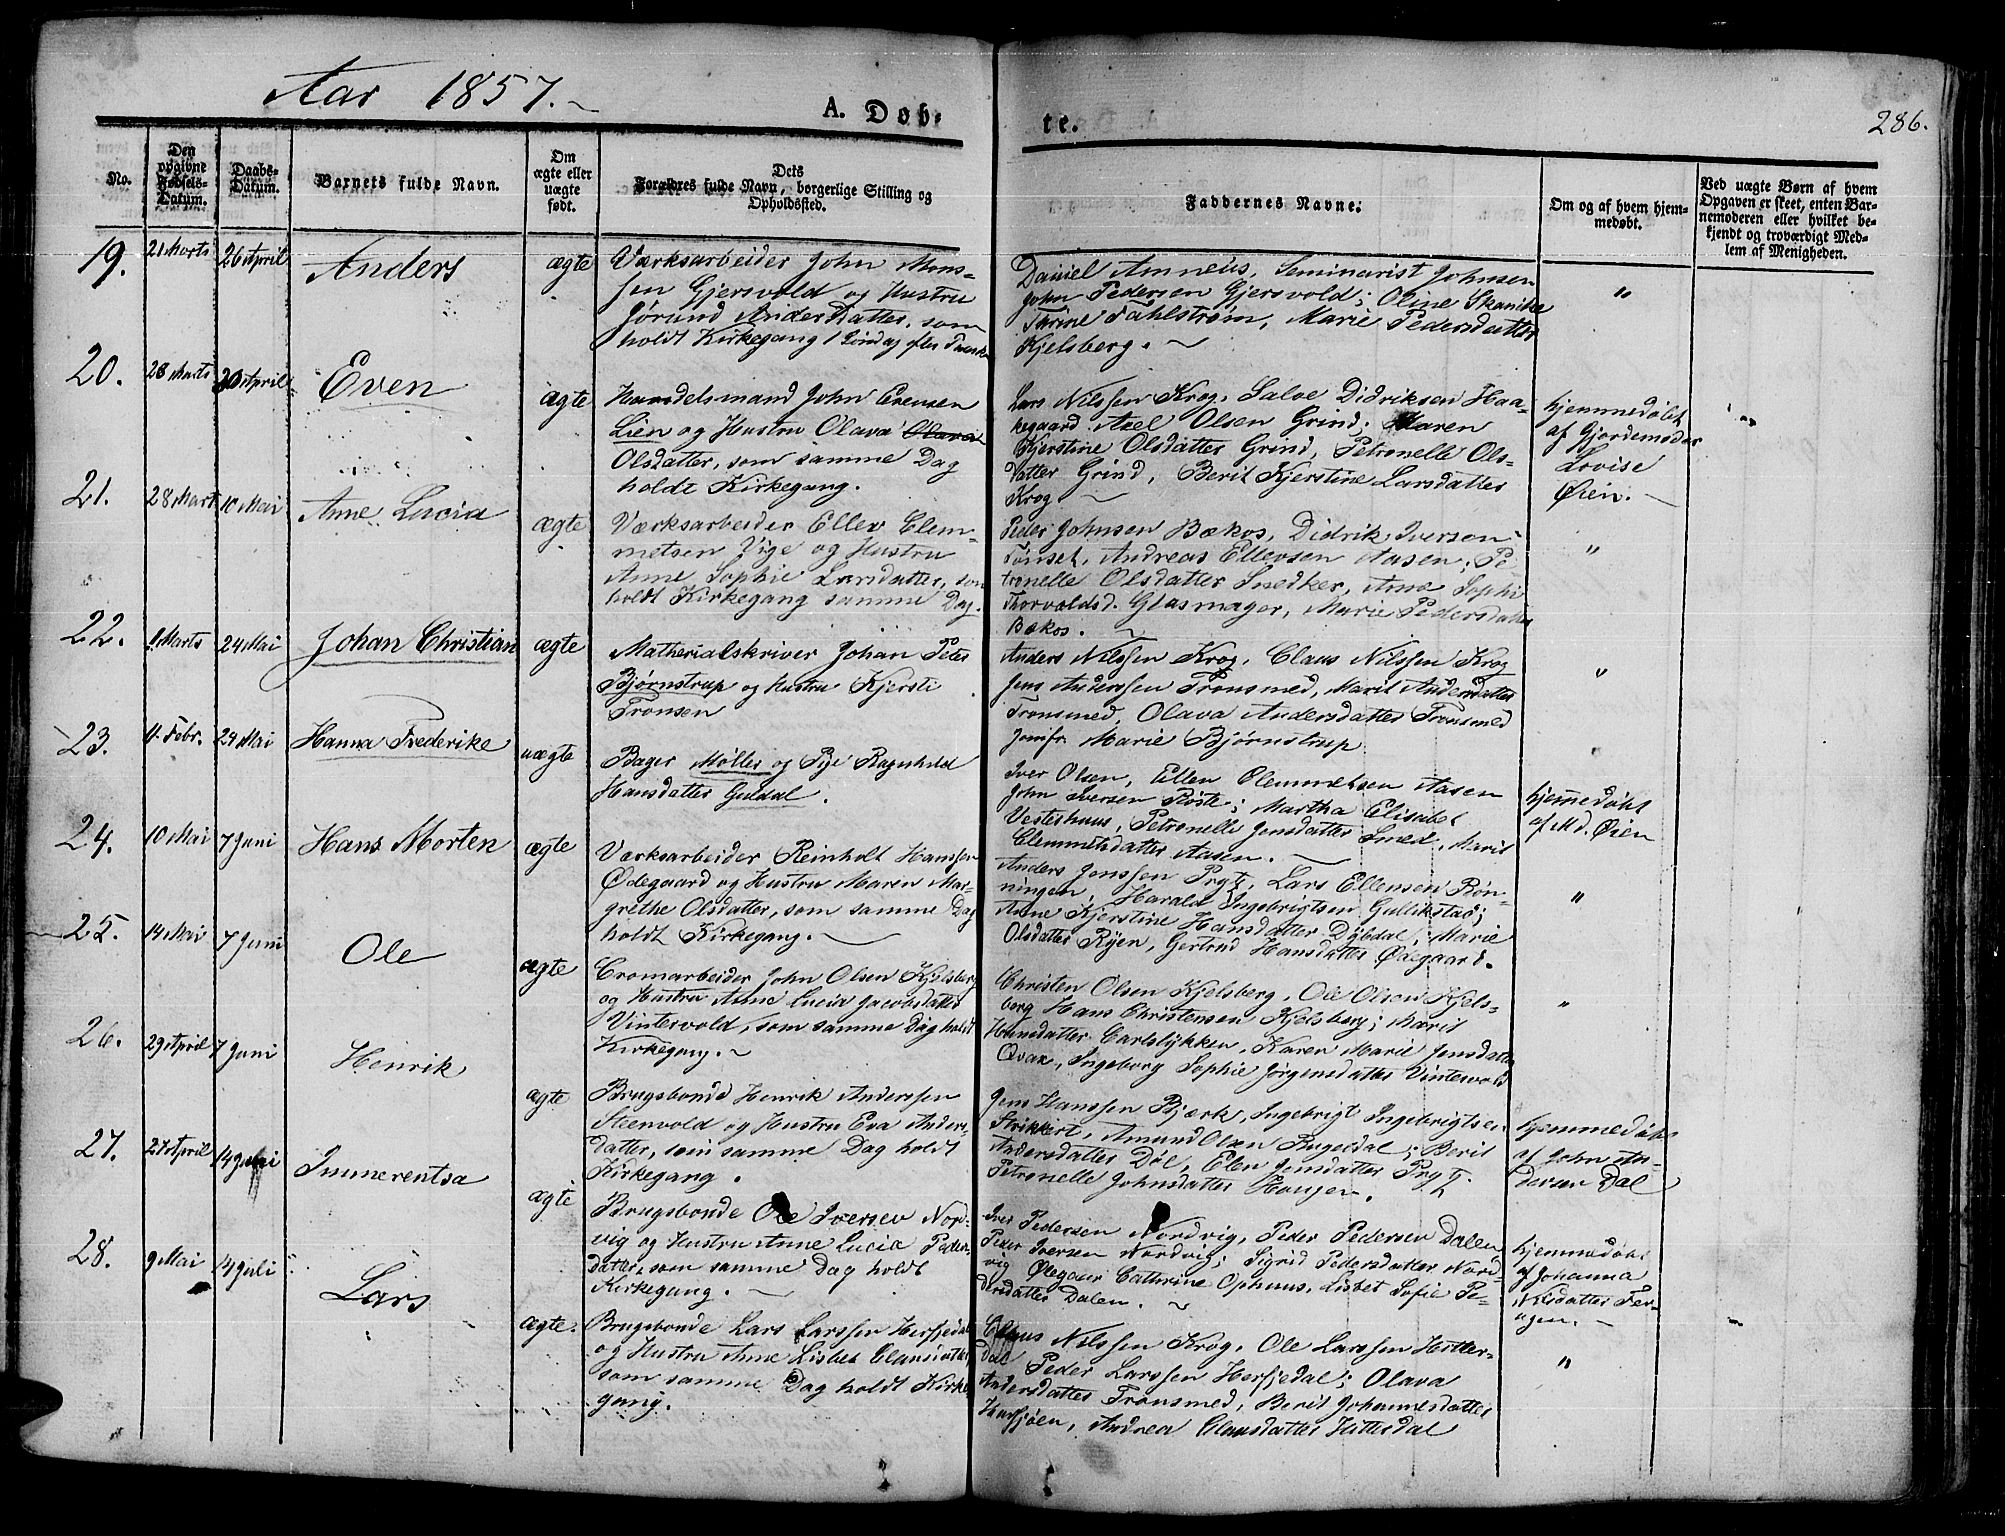 Aar 1857.
A. Døb-
te.
286.
No.
Den
opgivne
Fødsels-
Datum.
Daabs-
Datum.
Barnets fulde Navn.
Om
ægte eller
uægte
født.
Dets
Forældres fulde Navn, borgerlige Stilling og
Opholdssted.
Faddernes Navne.
Om og af hvem hjem-
medøbt.
Ved uægte Børn af hvem
Opgaven er skeet, enten Bar-
nemoderen eller hvilket be-
kjendt og troværdigt Med-
lem af Menigheden.
19.
21 Marts
26 April
Anders
ægte
Værksarbeider John Mons-
sen Gjersvold og Hustru
Jørund Andersdatter, som
holdt Kirkegang
Daniel Amneus, Seminarist Johnsen
John Pedersen Gjersvold; Oline Skanike
Trine Fahlstrøm, Marie Pedersdatter
Kjelsberg.
"
20.
28 Marts
April
Even
ægte
Handelsmand John Evensen
Lien og Hustru Olava
Olsdatter, som samme Dag
holdt Kirkegang.
Lars Nilssen Krog, Salve Didriksen Haa-
kegaard. Axel Olsen Grind; Maren
Kjerstine Olsdatter Grind, Petronelle Ols-
datter Grind, Berit Kjerstine Larsdatter
Krog.
hjemmedøbt
af Gjordemoder
Lovise
Øien.
21.
28 Marts
10 Mai
Anne Lucia
ægte
Værksarbeider Ellev Clem-
metsen Vige og Hustru
Anne Sophie Larsdatter, som
holdt Kirkegang samme Dag.
Peder Johnsen Bækos, Didrik Iversen
Tønset, Andreas Ellevsen Aasen; Pe-
tronelle Olsdatter Snedker, Anne Sophi
Thorvoldsd. Glasmager, Marie Pedersdatter
Bækos.
"
22.
Marts
24 Mai
Johan Christian
ægte
Matherialskriver Johan Peter
Bjørnstrup og Hustru Kjersti
Tronsen
Anders Nilssen Krog, Claus Nilssen Krog
Jens Anderssen Tronsmed, Marit Andersdatter
Tronsmed, Olava Andersdatter Tronsmed
Jomfr. Marie Bjørnstrup
"
23.
Febr.
24 Mai
Hanna Frederike
uægte
Bager Møller og Pige Ragnhild
Hansdatter Guldal.
Iver Olsen, Ellen Clemmetsen Aasen
John Iversen Røste; Martha Elisabet
Vesterhuus, Petronelle Jonsdatter Smed, Marit
Clemmetsdatter Aasen.
hjemmedøbt
af Md. Øien
24.
10 Mai
7 Juni
Hans Morten
ægte
Værksarbeider Reinholt Hanssen
Ødegaard og Hustru Maren Mar-
grethe Olsdatter, som samme Dag
holdt Kirkegang.
Anders Jonssen Prytz, Lars Ellensen Røn-
ningen, Harald Ingebrigtsen Gullikstad;
Anne Kjerstine Hansdatter Dybdal, Marie
Olsdatter Ryen, Gertrud Hansdatter Ødegaard.
"
25.
14 Mai
7 Juni
Ole
ægte
Cromarbeider John Olsen Kjelsberg
og Hustru Anne Lucia Jacobsdatter
Vintervold, som samme Dag holdt
Kirkegang.
Christen Olsen Kjelsberg, Ole Olsen Kjels-
berg Hans Christensen Kjelsberg; Marit
Hansdatter Carlslykken, Karen Marie Jensdatter
Ovan, Ingeborg Sophie Jørgensdatter Vintervold
"
26.
29 April
7 Juni
Henrik
ægte
Brugsbonde Henrik Anderssen
Steenvold og Hustru Eva Anders-
datter, som samme Dag holdt
Kirkegang.
Jens Hanssen Bjærk, Ingebrigt Ingebrigtsen
Strikkert, Amund Olsen Rugeldal; Berit
Andersdatter Døl, Elen Jensdatter Prytz,
Petronelle Johnsdatter Hansen.
hjemmedøbt
af John An-
dersen Dal
27.
27 April
14
Immerentsa
ægte
Brugsbonde Ole Iversen Nord-
vig og Hustru Anne Lucia Peder-
datter, som samme Dag holdt
Kirkegang.
Iver Pedersen Nordvig, Peder Pedersen Dalen
Peder Iversen Nordvig; Sigrid Pedersdatter Nord-
vig Ølegaar Cathrine Ophuus, Lisbet Sofie Pe-
dersdatter Dalen.
hjemmedøbt
af Johanna
Nilsdatter Fer-
agen.
28.
9 Mai
14 Juli
Lars
ægte.
Brugsbonde Lars Larssen Hersjedal
og Hustru Anne Lisbet Clausdatter,
som samme Dag holdt Kirke-
gang.
Claus Nilssen Krog, Ole Larssen Hitter-
dal Peder Larssen Hersjedal; Olava
Andersdatter Tronsmed, Berit Johannesdatter
Harsjøen, Andrea Clausdatter Hitterdal
"